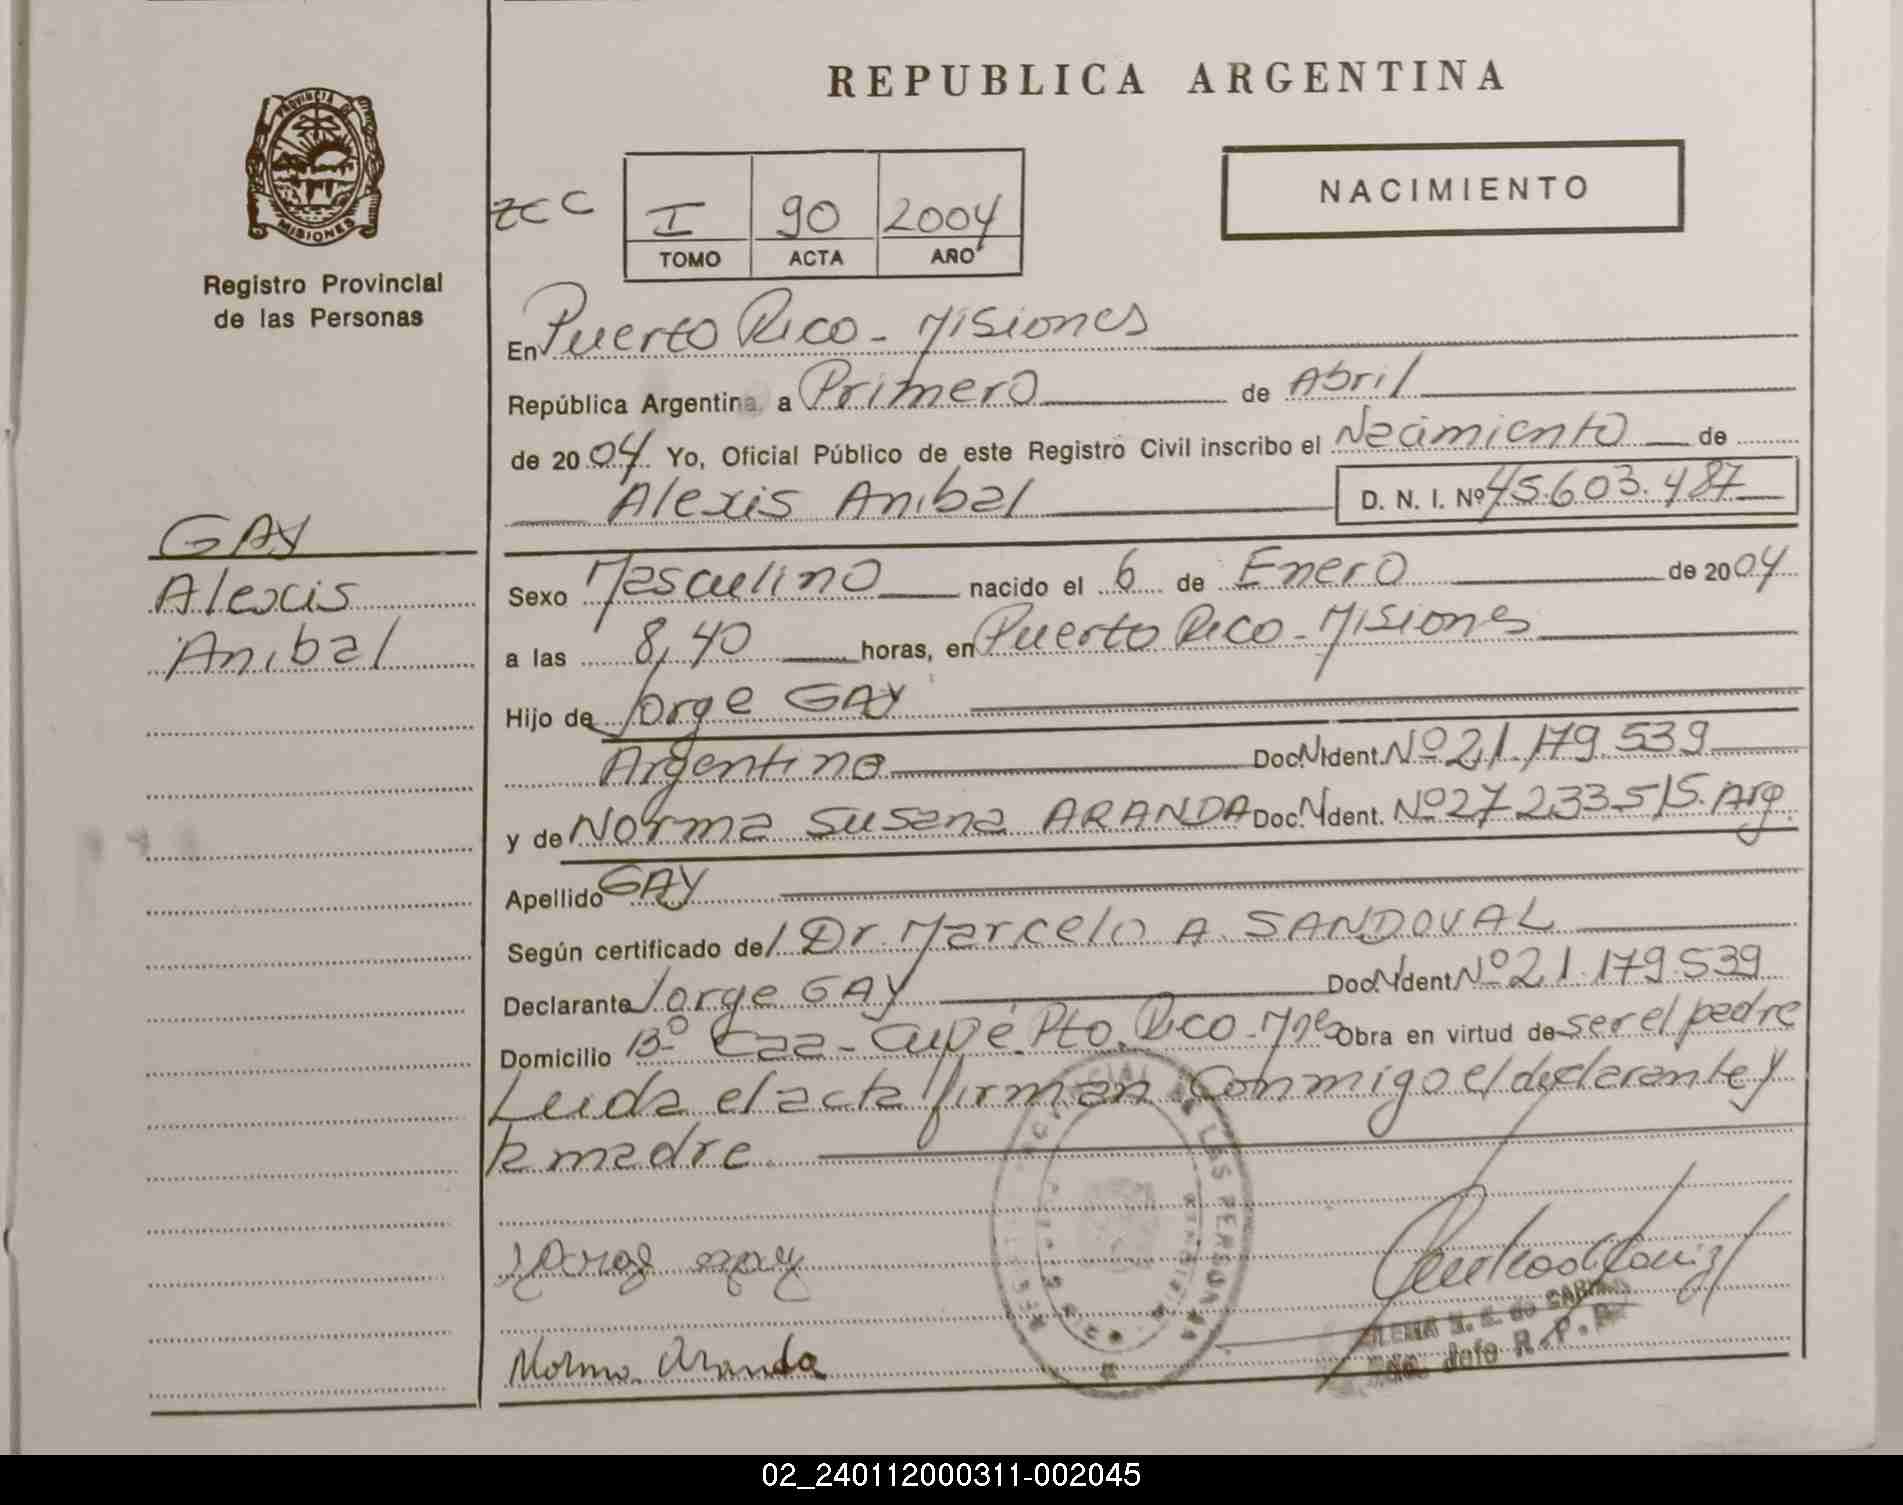 PROVINCIA DE
MISIONES
Registro Provincial
de las Personas
GAY
Alexis
Anibal
REPUBLICA ARGENTINA
I 90 2004
TOMO ACTA AÑO
NACIMIENTO
En Puerto Rico - Misiones
República Argentina a Primero de Abril
de 2004 Yo, Oficial Público de este Registro Civil inscribo el Nacimiento de
Alexis Anibal D. N. I. Nº 45.603.487
Sexo Masculino nacido el 6 de Enero de 2004
a las 8,40 horas, en Puerto Rico - Misiones
Hijo de Jorge GAY
Argentino Doc. N Ident. Nº 21.179.539
y de Norma Susana ARANDA Doc. N Ident. Nº 27.233.515. Arg.
Apellido GAY
Según certificado del Dr. Marcelo A. SANDOVAL
Declarante Jorge GAY Doc. N Ident Nº 21.179.539
Domicilio Bº Caa - Cupé. Pto. Rico - Mnes Obra en virtud de ser el padre
Leida el acta firman conmigo el declarante y
la madre.
Norma Aranda
Jefe R.P.P.
02_240112000311-002045